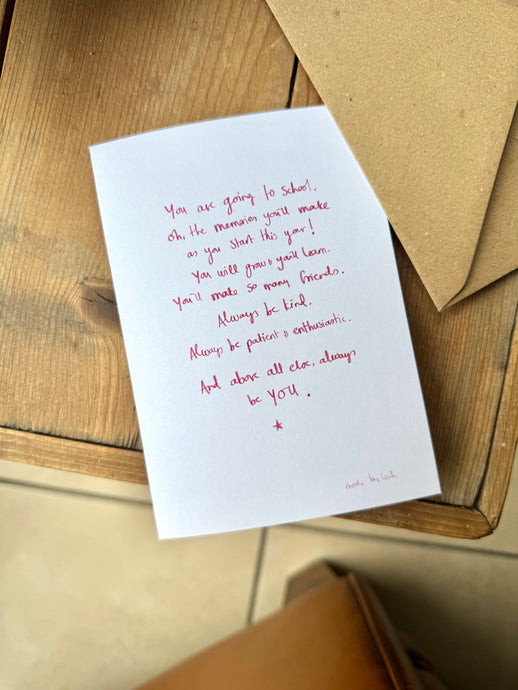 You are going to School.
Oh, the memories you'll make
as you start this year!
You will grow & you'll learn.
You'll make so many friends.
Always be kind.
Always be patient & enthusiastic.
And above all else, always
be YOU.
made by Leah